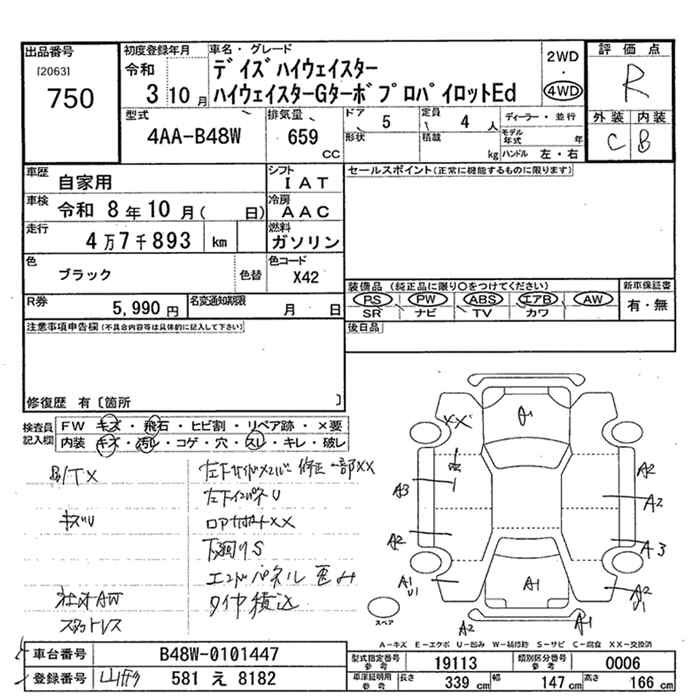 出品番号
[2063]
750
初度登録年月
令和
3 10 月
車名・グレード
デイズハイウェイスター
ハイウェイスターGターボプロパイロットEd
2WD
・
4WD
評価点
R
外装 内装
C B
型式
4AA-B48W
排気量
659
CC
ドア
5
形状
定員
4 人
積載
kg
ディーラー・並行
モデル年式 年
ハンドル 左・右
車歴
自家用
シフト
IAT
車検
令和 8年10月( 日)
冷房
AAC
走行
4万7千893 km
燃料
ガソリン
色
ブラック
色替
色コード
X42
R券
5,990 円
名変通知期限
月 日
セールスポイント(正常に機能するものに限ります)
装備品 (純正品に限り○をつけてください)
PS PW ABS エアB AW
SR ナビ TV カワ
新車保証書
有・無
後日品
注意事項申告欄(不具合内容等は具体的に記入して下さい)
修復歴 有〔箇所 〕
検査員記入欄
FW キズ・飛石・ヒビ割・リペア跡・×要
内装 キズ・汚レ・コゲ・穴・スレ・キレ・破レ
キズU
社外AW
スタットレス
左下サイドメンバー修正一部XX
左下インパネU
ロアサポートXX
下廻りS
エンドパネル凹み
タイヤ積込
XX
A1
A3
A2
A1
U1
A2
A2
A3
A2
U1
A1
A2
A2
スペア
A-キズ E-エクボ U-凹み W-補修跡 S-サビ C-腐食 XX-交換済
車台番号
B48W-0101447
登録番号
581 え 8182
型式指定番号
参考
19113
類別区分番号
参考
0006
車庫証明用
参考
長さ
339 cm
幅
147 cm
高さ
166 cm